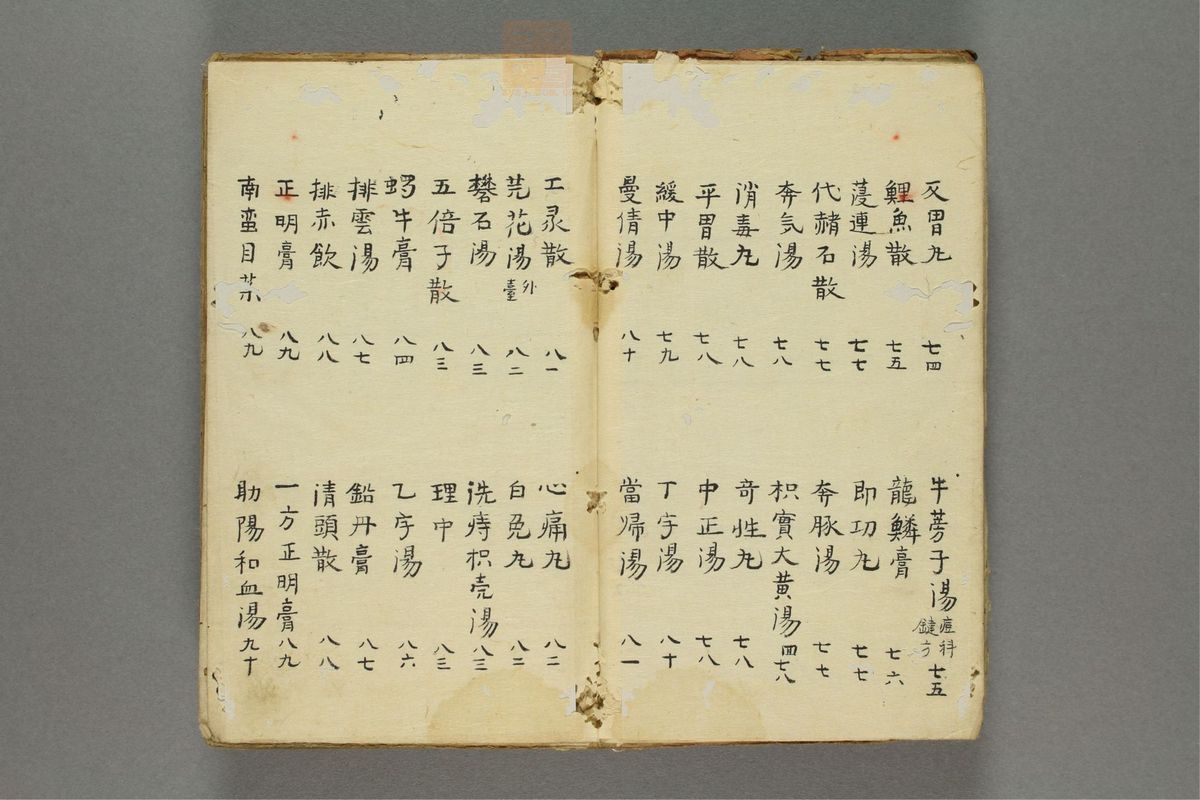 反胃丸 七四 牛蒡子湯 痘科鍵方 七五
鯉魚散 七五 龍鱗膏 七六
連湯 七七 即功丸 七七
代赭石散 七七 奔豚湯 七七
奔気湯 七八 枳實大黄湯 四七八
消毒丸 七八 奇性丸 七八
平胃散 七八 中正湯 七八
緩中湯 七九 丁字湯 八十
曼倩湯 八十 當帰湯 八一
工灵散 八一 心痛丸 八二
芫花湯 外臺 八二 白兔丸 八二
礬石湯 八三 洗痔枳壳湯 八三
五倍子散 八三 理中 八三
蝸牛膏 八四 乙字湯 八六
排雲湯 八七 鉛丹膏 八七
排赤飲 八八 清頭散 八八
正明膏 八九 一方正明膏 八九
南蛮目 八九 助陽和血湯 九十